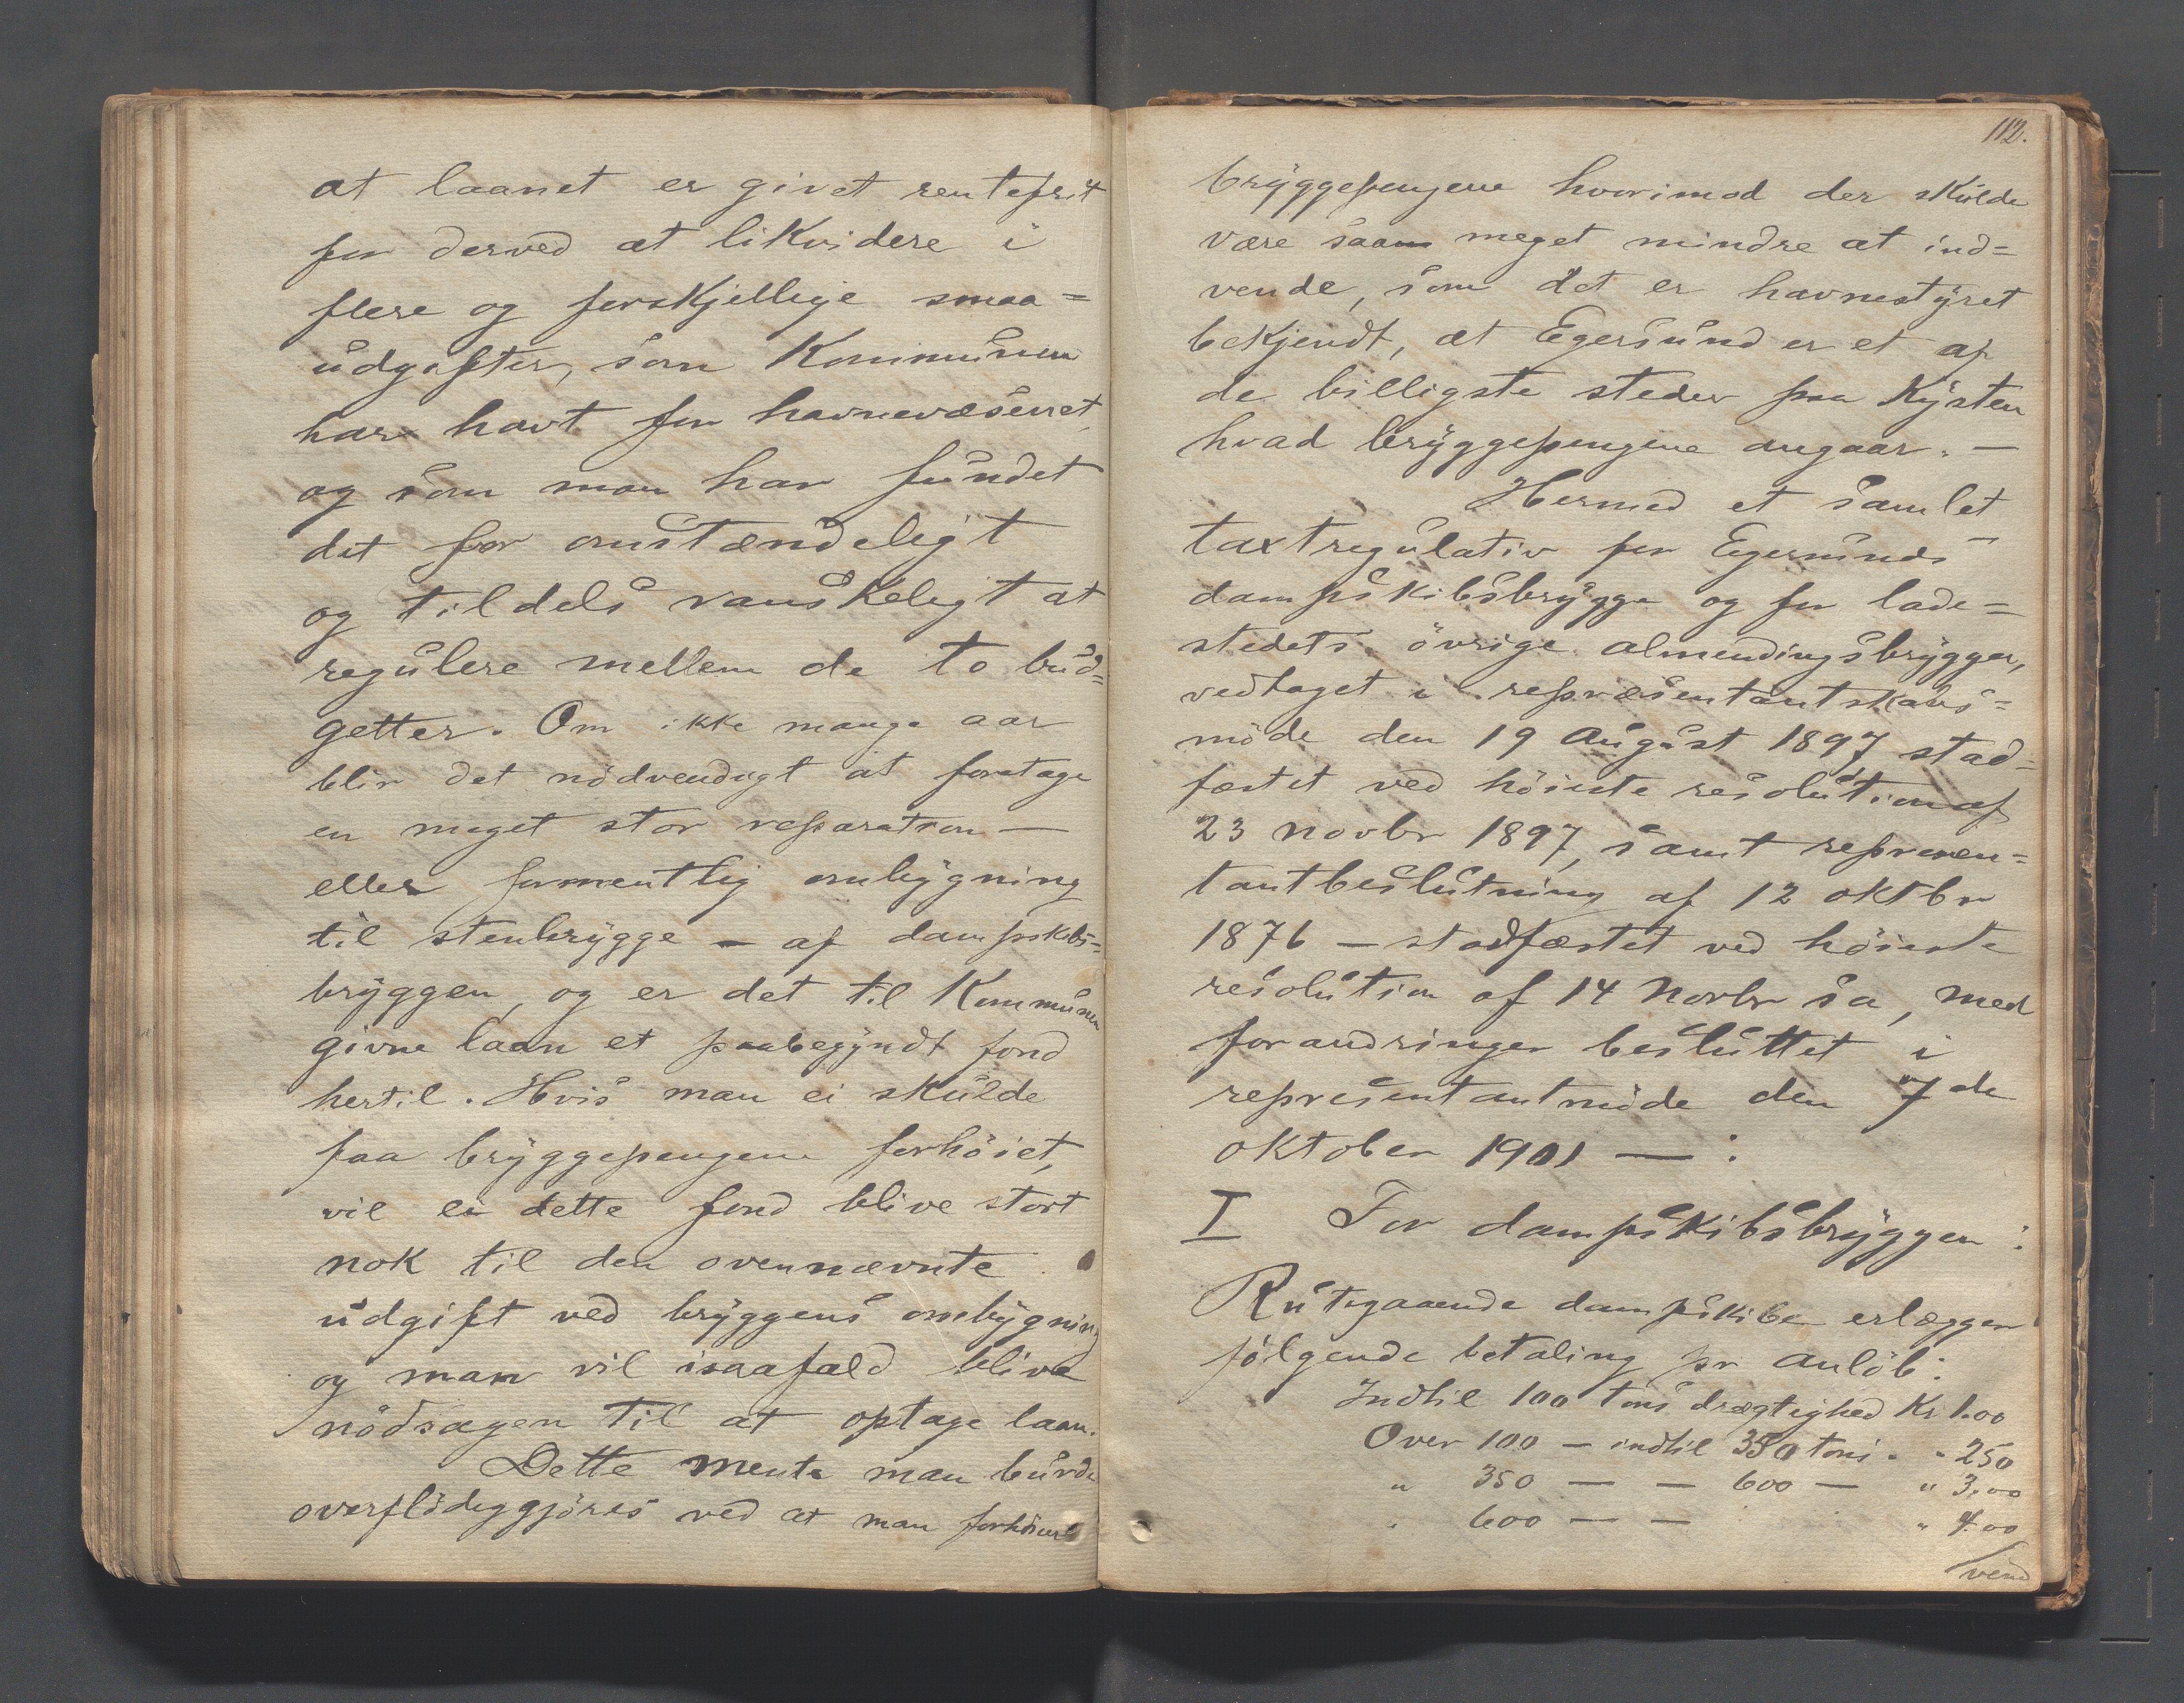 at laanet er givet rentefrit
for derved at likvidere i
flere og forskjellige smaa=
udgifter, som Kommunen
har havt for havnevæsenet,
og som man har fundet
det for omstændeligt
og tildels vanskeligt at
regulere mellem de to bud=
getter. Om ikke mange aar
blir det nödvendigt at foretage
en meget stor reparation —
eller formentlig ombygning
til stenbrygge — af dampskibs=
bryggen, og er det til Kommunen
givne laan et paabegyndt fond
hertil. Hvis man ei skulde
faa bryggepengene forhöiet,
vil ei dette fond blive stort
nok til den ovennævnte
udgift ved bryggens ombygning
og man vil isaafald blive
nödsagen til at optage laan.
Dette mente man burde
overflödiggjöres ved at man forhöiede
112.
bryggepengene hvorimod der skulde
være saa meget mindre at ind=
vende, som det er havnestyret
bekjendt, at Egersund er et af
de billigste steder paa Kysten
hvad bryggepengene angaar. —
Hermed et samlet
taxtregulativ for Egersunds
dampskibsbrygge og for lade=
stedets övrige almendingsbrygger,
vedtaget i repræsentantskabs=
möde den 19 August 1897, stad=
fæstet ved höieste resolution af
23 novbr 1897, samt represen=
tantbeslutning af 12 oktbr
1876 — stadfæstet ved höieste
resolution af 14 Novbr sa, med
forandringer besluttet i
representantmöde den 7de
oktober 1901 — :
I For dampskibsbryggen :
Rutegaaende dampskibe erlægger
følgende betaling pr anlöb:
Indtil 100 tons drægtighed Kr 1.00
Over 100 — indtil 350 tons. " 250
" 350 — — 600 — " 3.00
" 600 — — " 4.00
/vend